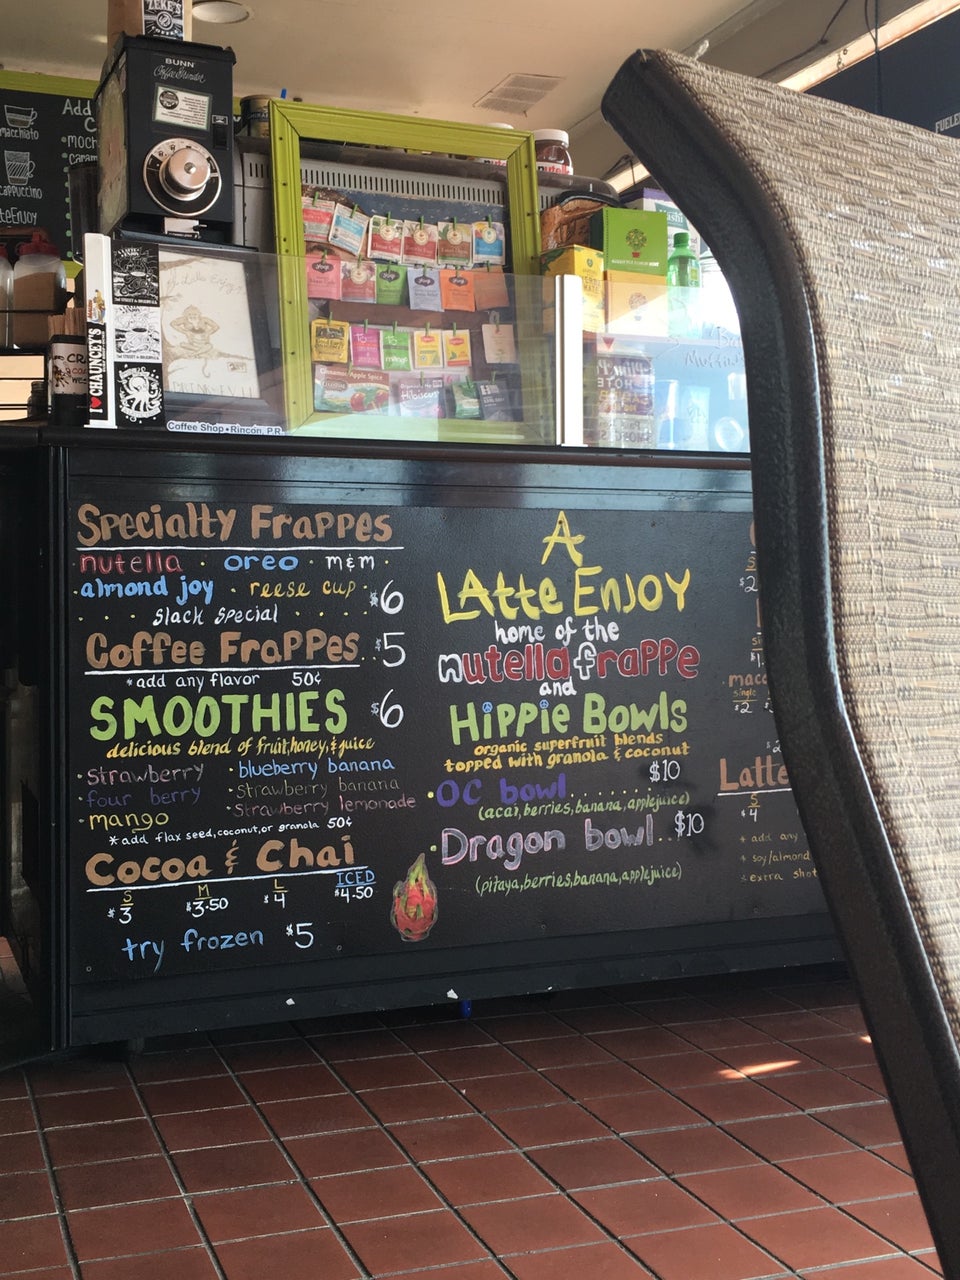 ZEKE'S
BUNN
Coffee Grinder
macchiato
cappuccino
Add
moch
Caram
FUELE
I ♥ CHAUNCEY'S
Coffee Shop • Rincón, P.R.
Cinnamon Apple Spice
Hibiscus
Specialty Frappes
nutella · oreo · m&m ·
· almond joy · reese cup · $6
· · slack special
Coffee Frappes .. $5
*add any flavor 50¢
SMOOTHIES $6
delicious blend of fruit, honey, & juice
· strawberry · blueberry banana
· four berry · strawberry banana
· mango · strawberry lemonade
*add flax seed, coconut, or granola 50¢
Cocoa & Chai
S M L ICED
$3 $3.50 $4 $4.50
try frozen $5
A
LAtte Enjoy
home of the
nutella frappe
and
Hippie Bowls
organic superfruit blends
topped with granola & coconut
$10
· OC bowl ........
(acai, berries, banana, applejuice)
· Dragon bowl .. $10
(pitaya, berries, banana, applejuice)
macc
single
$2
Latte
S
$4
* add any
* soy/almond
* extra shot